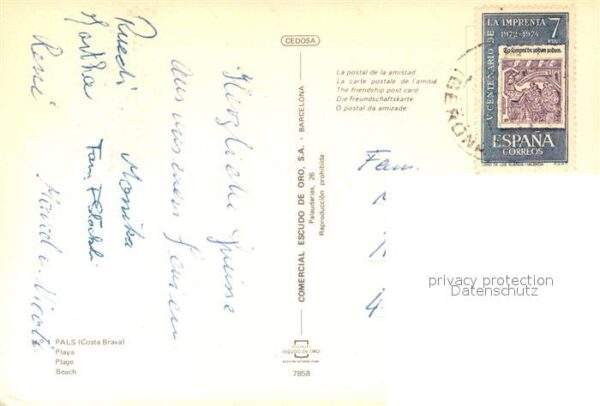 Herzliche Grüsse
aus unseren Ferien
Ruedi
Martha
René
Monika
Fam.
PALS (Costa Brava)
Playa
Plage
Beach
CEDOSA
COMERCIAL ESCUDO DE ORO, S.A. - BARCELONA
Palaudarias, 26
Reproducción prohibida
ESCUDO DE ORO
7858
La postal de la amistad
La carte postale de l'amitié
The friendship post card
Die freundschaftskarte
O postal da amizade
V CENTENARIO DE LA IMPRENTA 7
1972-1974 PTAS
ESPAÑA
CORREOS
GERONA
Fam.
4
privacy protection
Datenschutz